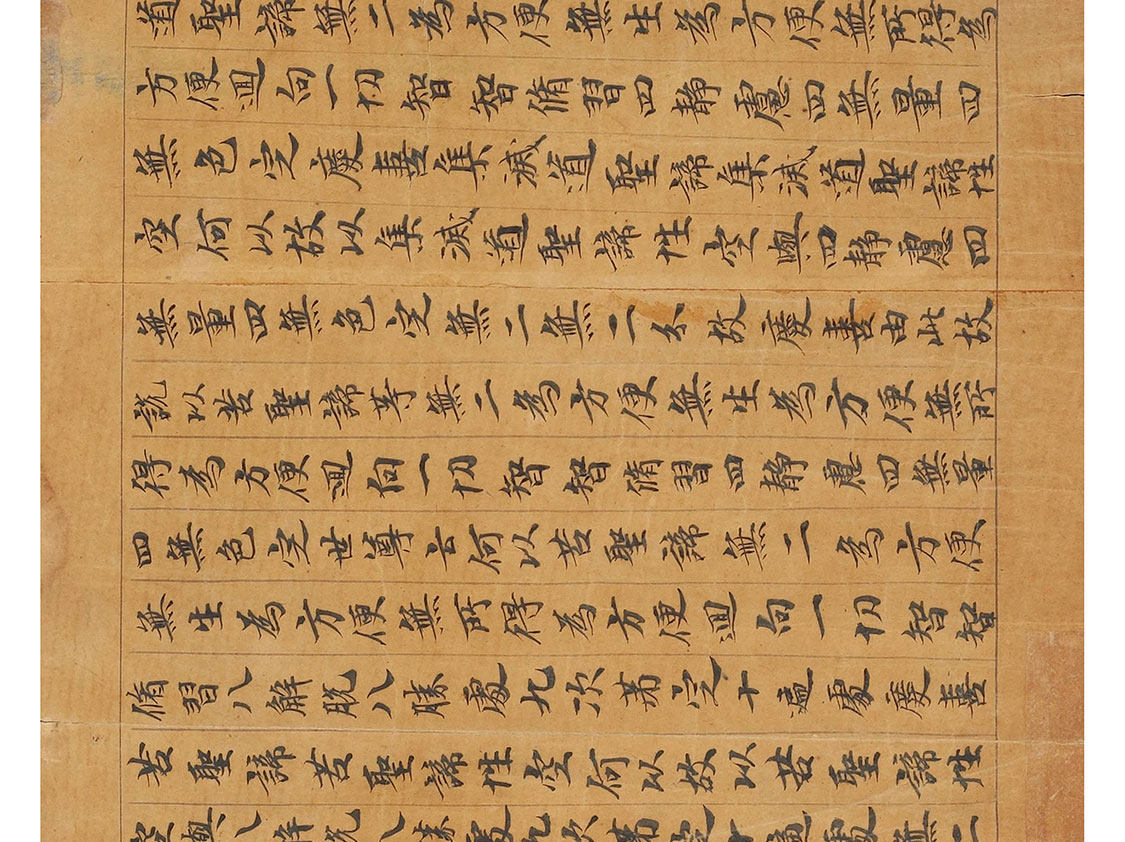 道聖諦無二為方便無生為方便無所得為
方便迴向一切智智脩習四静慮四無量四
無色定慶喜集滅道聖諦集滅道聖諦性
空何以故以集滅道聖諦性空與四静慮四
無量四無色定無二無二分故慶喜由此故
說以苦聖諦等無二為方便無生為方便無所
得為方便迴向一切智智脩習四静慮四無量
四無色定世尊云何以苦聖諦無二為方便
無生為方便無所得為方便迴向一切智智
脩習八解脫八勝處九次第定十遍處慶喜
苦聖諦苦聖諦性空何以故以苦聖諦性
空與八解脫八勝處九次第定十遍處無二